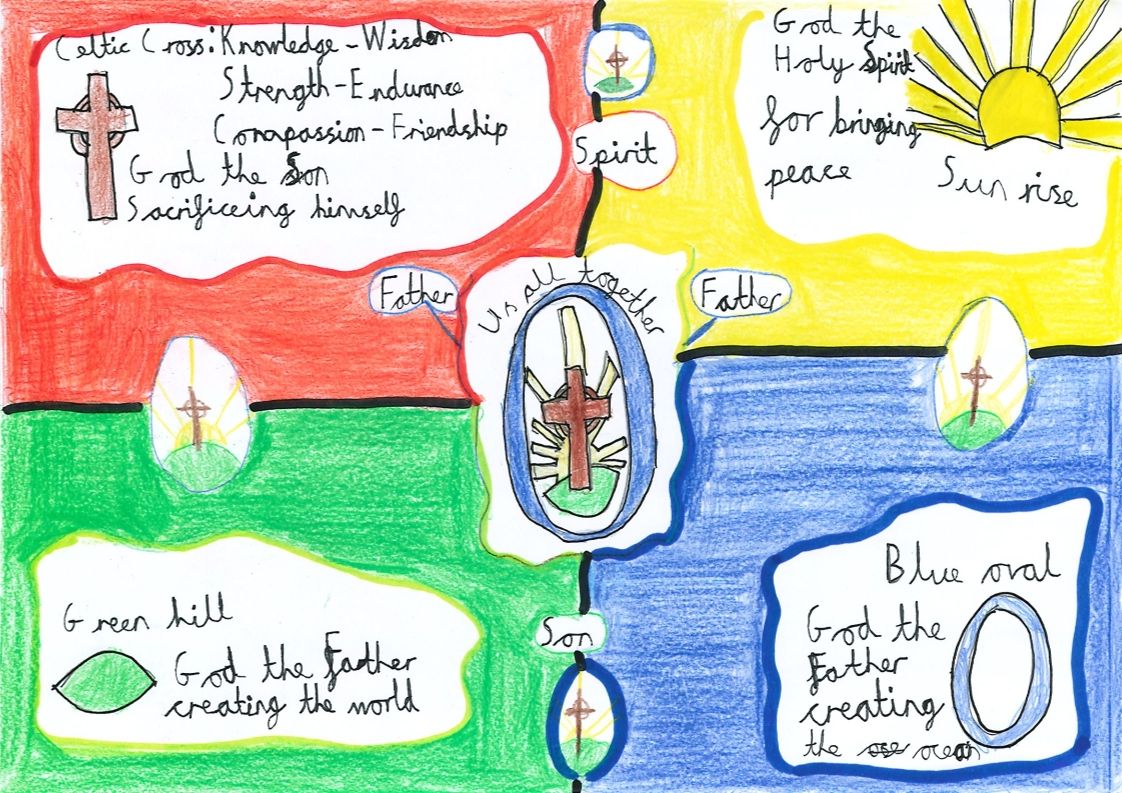 Celtic Cross: Knowledge - Wisdom
Strength - Endurance
Comapassion - Friendship
God the Son
Sacrificeing himself
God the
Holy Spirit
for bringing
peace
Sun rise
Spirit
Father
Us all together
Father
Green hill
God the Father
creating the world
Son
Blue oval
God the
Father
creating
the ocean